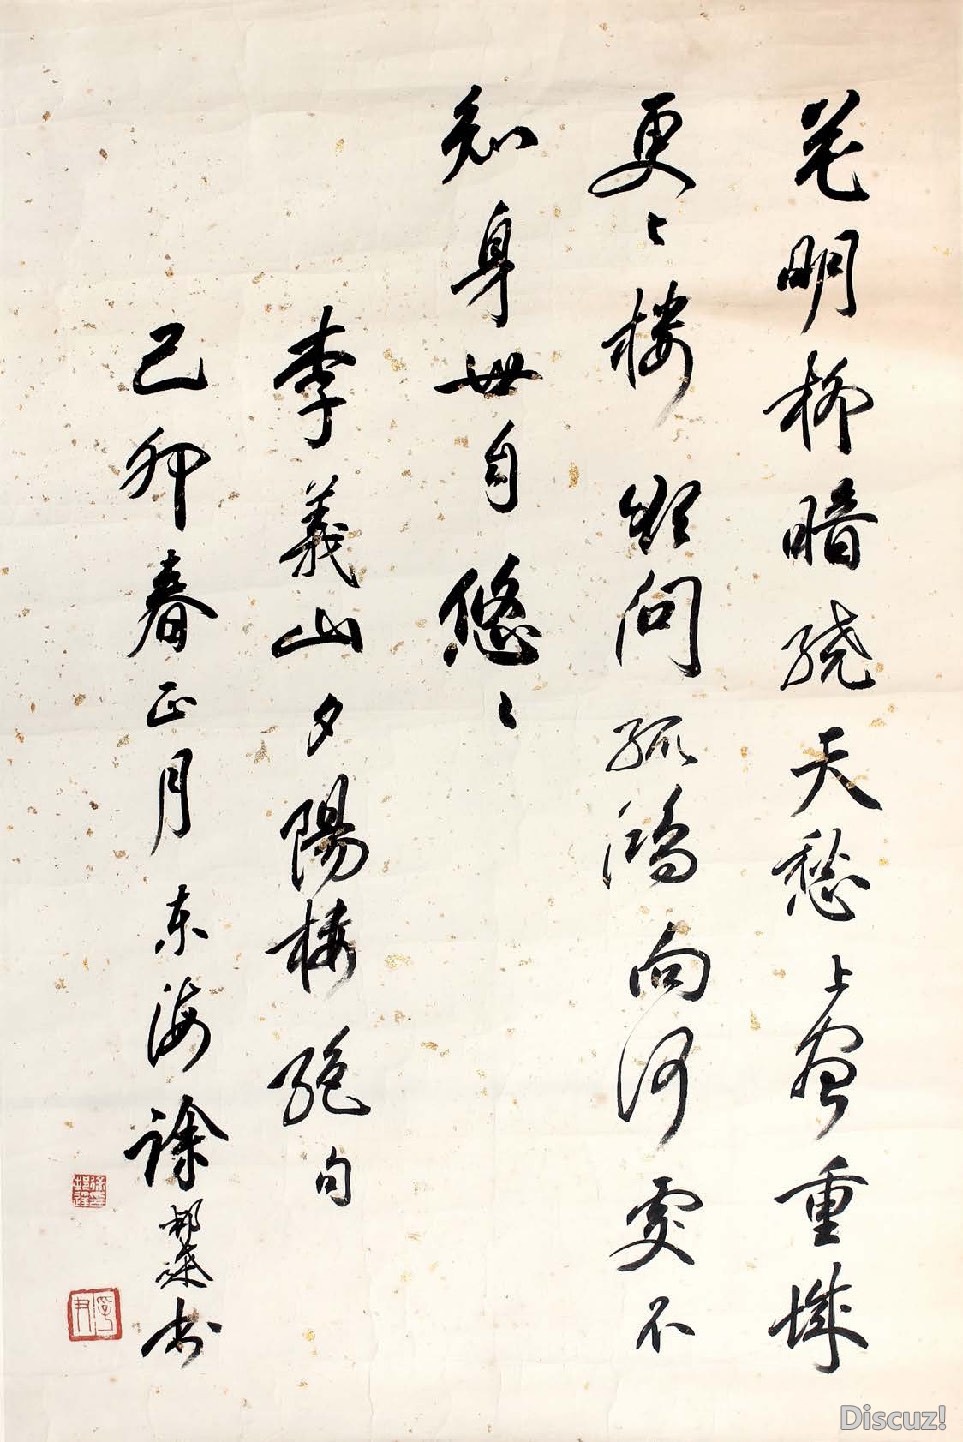 花明柳暗绕天愁上尽重城
更々楼欲问孤鸿向何处不
知身世自悠々
李義山夕陽楼绝句
己卯春正月东海徐邦达书
Discuz!